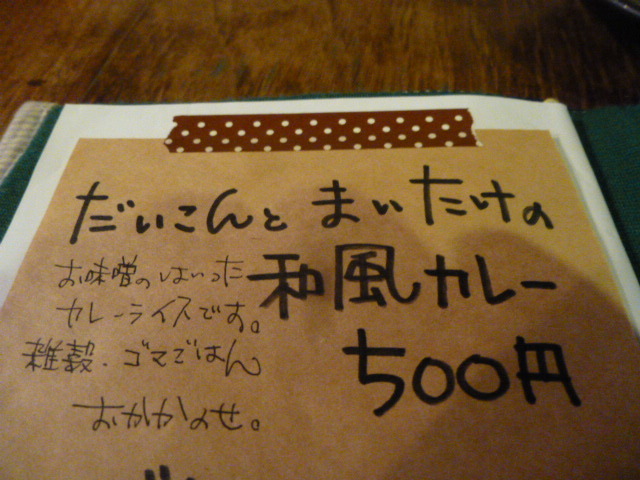 だいこんとまいたけの
和風カレー
500円
お味噌のはいった
カレーライスです。
雑穀・ゴマごはん
おかかのせ。